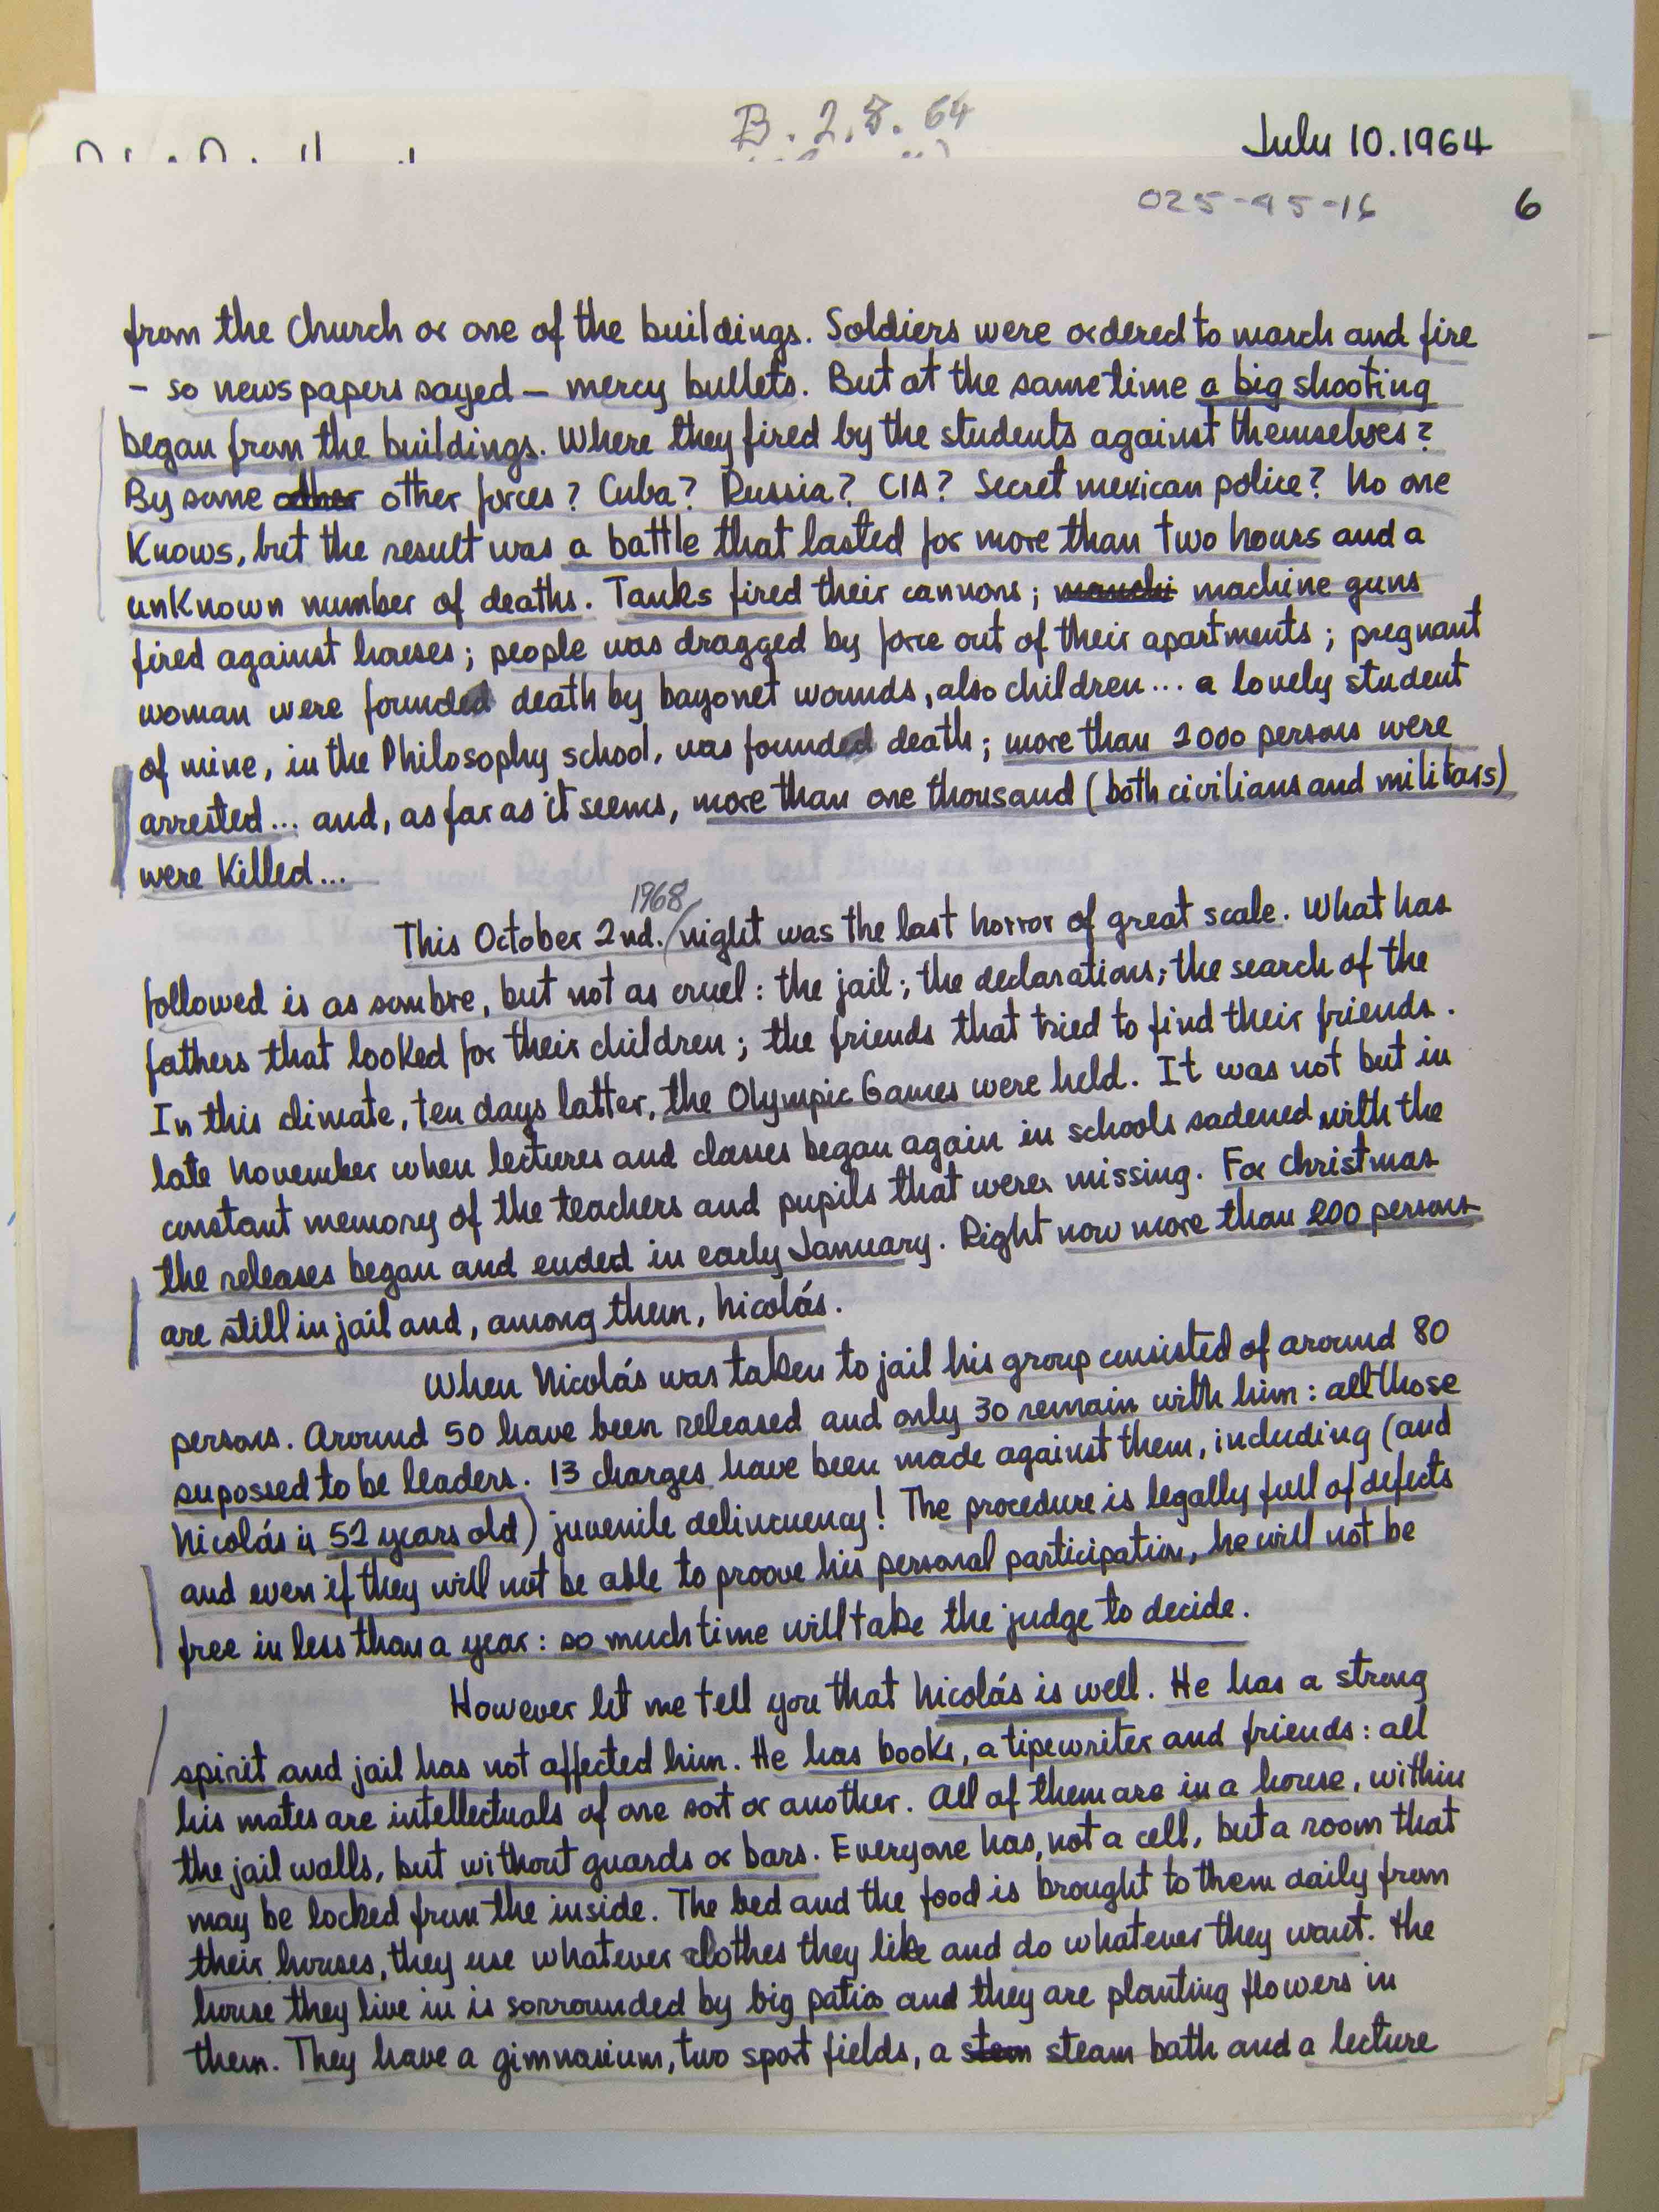 B. 2.8. 64
July 10. 1964
025-45-16 6
from the Church or one of the buildings. Soldiers were ordered to march and fire
– so newspapers sayed – mercy bullets. But at the same time a big shooting
began from the buildings. Where they fired by the students against themselves?
By some other other forces? Cuba? Russia? CIA? Secret mexican police? No one
Knows, but the result was a battle that lasted for more than two hours and a
unKnown number of deaths. Tanks fired their cannons; manchi machine guns
fired against houses; people was dragged by force out of their apartments; pregnant
woman were founded death by bayonet wounds, also children... a lovely student
of mine, in the Philosophy school, was founded death; more than 2000 persons were
arrested... and, as far as it seems, more than one thousand (both civilians and militars)
were Killed...
1968
This October 2nd. night was the last horror of great scale. What has
followed is as sombre, but not as cruel: the jail; the declarations; the search of the
fathers that looked for their children; the friends that tried to find their friends.
In this climate, ten days latter, the Olympic Games were held. It was not but in
late November when lectures and classes began again in schools sadened with the
constant memory of the teachers and pupils that were missing. For Christmas
the releases began and ended in early January. Right now more than 200 persons
are still in jail and, among them, Nicolás.
When Nicolás was taken to jail his group consisted of around 80
persons. Around 50 have been released and only 30 remain with him: all those
supossed to be leaders. 13 charges have been made against them, including (and
Nicolás is 52 years old) juvenile delincuency! The procedure is legally full of defects
and even if they will not be able to proove his personal participation, he will not be
free in less than a year: so much time will take the judge to decide.
However let me tell you that Nicolás is well. He has a strong
spirit and jail has not affected him. He has books, a tipewriter and friends: all
his mates are intellectuals of one sort or another. All of them are in a house, within
the jail walls, but without guards or bars. Everyone has, not a cell, but a room that
may be locked from the inside. The bed and the food is brought to them daily from
their houses, they use whatever clothes they like and do whatever they want. The
house they live in is sorrounded by big patios and they are planting flowers in
them. They have a gimnasium, two sport fields, a stem steam bath and a lecture